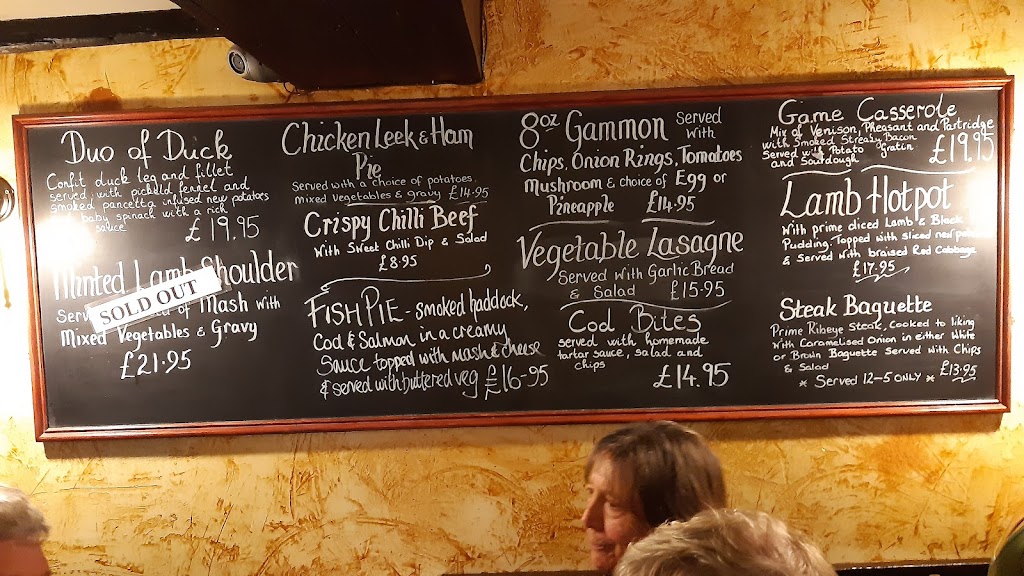 Duo of Duck
Confit duck leg and fillet
served with pickled fennel and
smoked pancetta infused new potatoes
baby spinach with a rich
sauce
£19.95
Minted Lamb Shoulder
SOLD OUT
of Mash With
Mixed Vegetables & Gravy
£21.95
Chicken Leek & Ham
Pie
Served with a choice of potatoes.
mixed vegetables & gravy £14.95
Crispy Chilli Beef
With Sweet Chilli Dip & Salad
£8.95
Fish Pie - smoked haddock,
Cod & Salmon in a creamy
Sauce topped with mash & cheese
& served with buttered veg £16-95
8oz Gammon Served
With
Chips, Onion Rings, Tomatoes
Mushroom & choice of Egg or
Pineapple £14.95
Vegetable Lasagne
Served With Garlic Bread
& Salad £15.95
Cod Bites
served with homemade
tartar sauce, salad and
chips
£14.95
Game Casserole
Mix of Venison, Pheasant and Partridge
with Smoked Streaky Bacon
Served with Potato Gratin
and Sourdough £19.95
Lamb Hotpot
With prime diced Lamb & Black
Pudding. Topped with sliced new
& Served with braised Red Cabbage
£17.95
Steak Baguette
Prime Ribeye Steak, Cooked to liking
With Caramelised Onion in either White
or Brown Baguette Served With Chips
& Salad £13.95
* Served 12-5 ONLY *